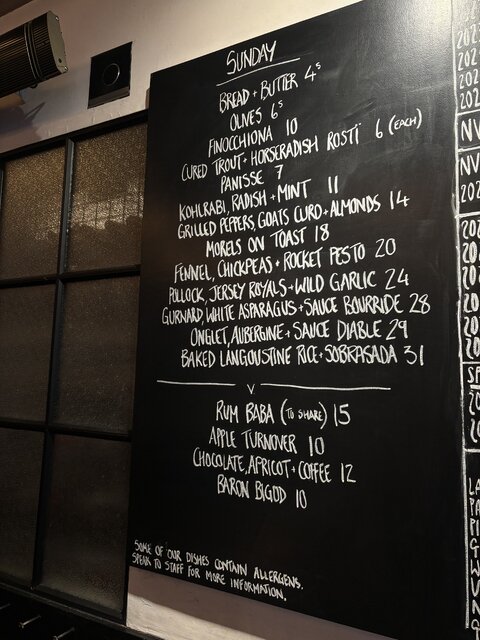 SUNDAY
BREAD + BUTTER 4⁵
OLIVES 6⁵
FINOCCHIONA 10
CURED TROUT + HORSERADISH ROSTI 6 (EACH)
PANISSE 7
KOHLRABI, RADISH + MINT 11
GRILLED PEPPERS, GOATS CURD + ALMONDS 14
MORELS ON TOAST 18
FENNEL, CHICKPEAS + ROCKET PESTO 20
POLLOCK, JERSEY ROYALS + WILD GARLIC 24
GURNARD, WHITE ASPARAGUS + SAUCE BOURRIDE 28
ONGLET, AUBERGINE + SAUCE DIABLE 29
BAKED LANGOUSTINE RICE + SOBRASADA 31
RUM BABA (TO SHARE) 15
APPLE TURNOVER 10
CHOCOLATE, APRICOT + COFFEE 12
BARON BIGOD 10
SOME OF OUR DISHES CONTAIN ALLERGENS.
SPEAK TO STAFF FOR MORE INFORMATION.
NV
NV